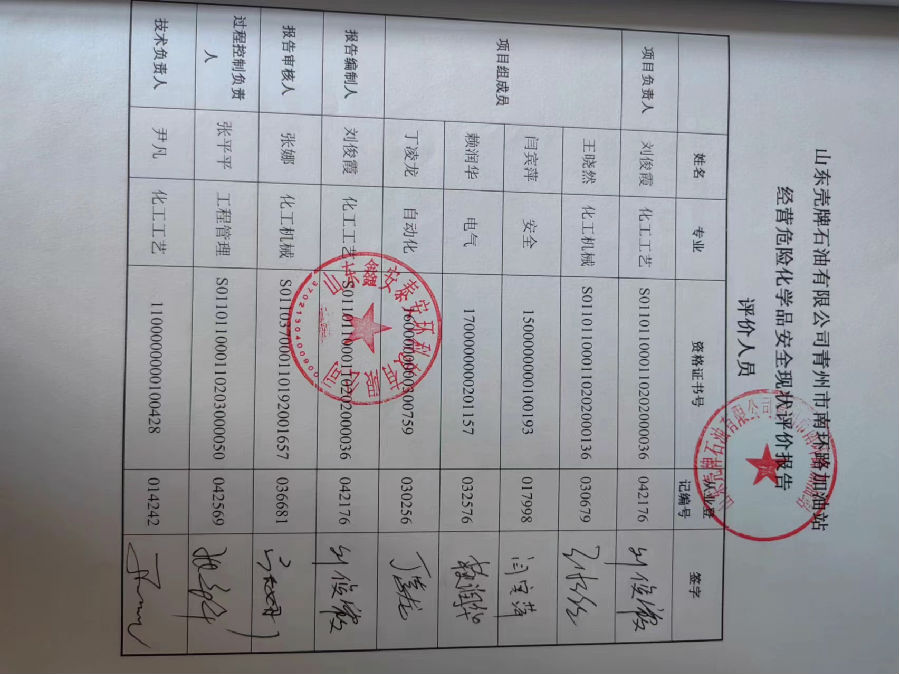 山东壳牌石油有限公司青州市南环路加油站
经营危险化学品安全现状评价报告
评价人员
姓名 专业 资格证书号 从业登记编号 签字
项目负责人 刘俊霞 化工工艺 S011011000110202000036 042176 刘俊霞
项目组成员 王晓然 化工机械 S011011000110202000136 030679
闫宾萍 安全 1500000000100193 017998 闫宾萍
赖润华 电气 1700000000201157 032576 赖润华
丁凌龙 自动化 1600000000300759 030256 丁凌龙
报告编制人 刘俊霞 化工工艺 S011011000110202000036 042176 刘俊霞
报告审核人 张娜 化工机械 S011037000110192001657 036681
过程控制负责人 张平平 工程管理 S011011000110203000050 042569
技术负责人 尹凡 化工工艺 1100000000100428 014242